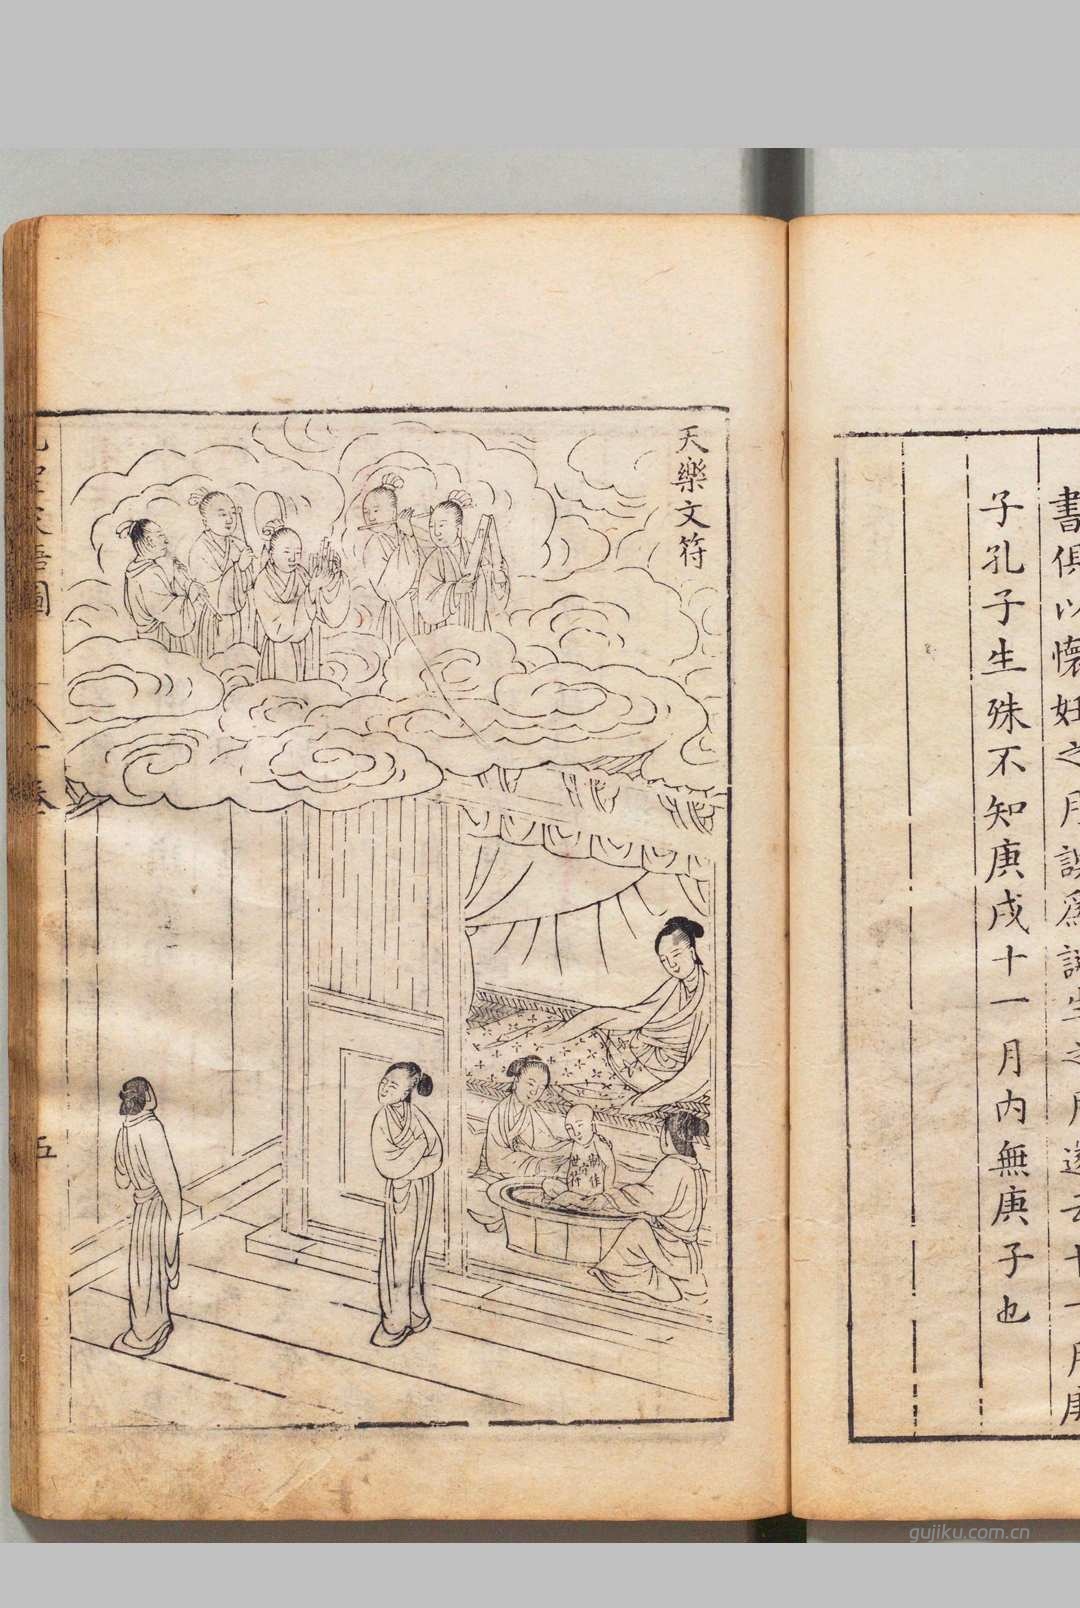 書俱以懷妊之月誤爲誕生之月遂去十一月庚
子孔子生殊不知庚戌十一月内無庚子也
天樂文符
制作
定
世符
家語圖
卷一
五
gujiku.com.cn